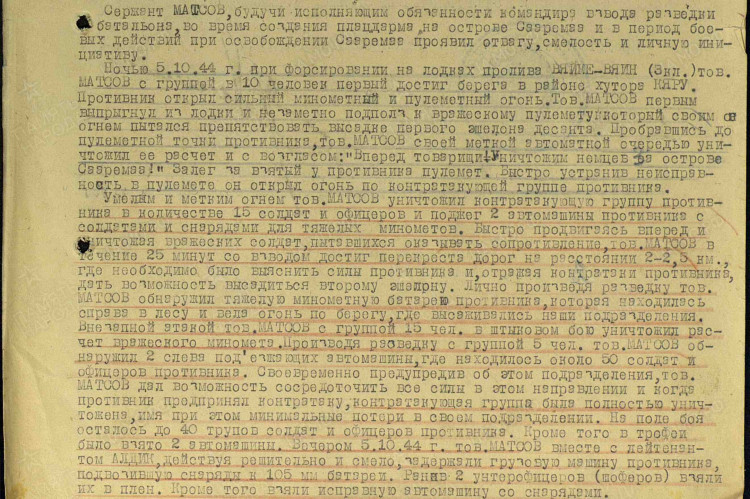 Сержант МАТСОВ, будучи исполняющим обязанности командира взвода разведки
батальона, во время создания плацдарма, на острове Сааремаа и в период бое-
вых действий при освобождении Сааремаа проявил отвагу, смелость и личную ини-
циативу.
Ночью 5.10.44 г. при форсировании на лодках пролива ВЯЙМЕ-ВЯИН (Экл.) тов.
МАТСОВ с группой в 10 человек первый достиг берега в районе хутора КЯРУ.
Противник открыл сильный минометный и пулеметный огонь. Тов. МАТСОВ первым
выпрыгнул из лодки и незаметно подполз к вражескому пулемету, который своим
огнем пытался препятствовать высадке первого эшелона десанта. Пробравшись до
пулеметной точки противника, тов. МАТСОВ своей меткой автоматной очередью уни-
чтожил ее расчет и с возгласом: "Вперед товарищи! Уничтожим немцев на острове
Сааремаа!" Залег за взятый у противника пулемет. Быстро устранив неисправ-
ность в пулемете он открыл огонь по контратакующей группе противника.
Умелым и метким огнем тов. МАТСОВ уничтожил контратакующую группу против-
ника в количестве 15 солдат и офицеров и поджег 2 автомашины противника с
солдатами и снарядами для тяжелых минометов. Быстро продвигаясь вперед и
уничтожая вражеских солдат, пытавшихся оказывать сопротивление, тов. МАТСОВ в
течение 25 минут со взводом достиг перекреста дорог на расстоянии 2-2,5 км.,
где необходимо было выяснить силы противника и, отражая контратаки противника,
дать возможность высадиться второму эшелону. Лично произведя разведку тов.
МАТСОВ обнаружил тяжелую минометную батарею противника, которая находилась
справа в лесу и вела огонь по берегу, где высаживались наши подразделения.
Внезапной атакой тов. МАТСОВ с группой 15 чел. в штыковом бою уничтожил рас-
чет вражеского миномета. Производя разведку с группой 5 чел. тов. МАТСОВ об-
наружил 2 слева под'езжающих автомашины, где находилось около 50 солдат и
офицеров противника. Своевременно предупредив об этом подразделения, тов.
МАТСОВ дал возможность сосредоточить все силы в этом направлении и когда
противник предпринял контратаку, контратакующая группа была полностью унич-
тожена, имя при этом минимальные потери в своем подразделении. На поле боя
осталось до 40 трупов солдат и офицеров противника. Кроме того в трофеи
было взято 2 автомашины. Вечером 5.10.44 г. тов. МАТСОВ вместе с лейтенан-
том АЛДИК, действуя решительно и смело, задержали грузовую машину противника,
подвозившую снаряды к 105 мм батареи. Ранив 2 унтерофицеров (шоферов) взяли
их в плен. Кроме того взяли исправную автомашину со снарядами.